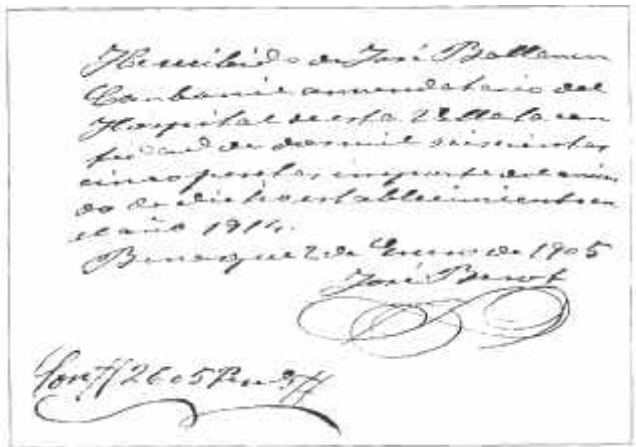 He recibido de José Ballarin
arrendatario del
Hospital de esta Villa la can
tidad de dos mil seiscientas
cinco pesetas importe del arrien
do de dicho establecimiento en
el año
Benasque 2 de Enero de 1905
José
Son // 2605